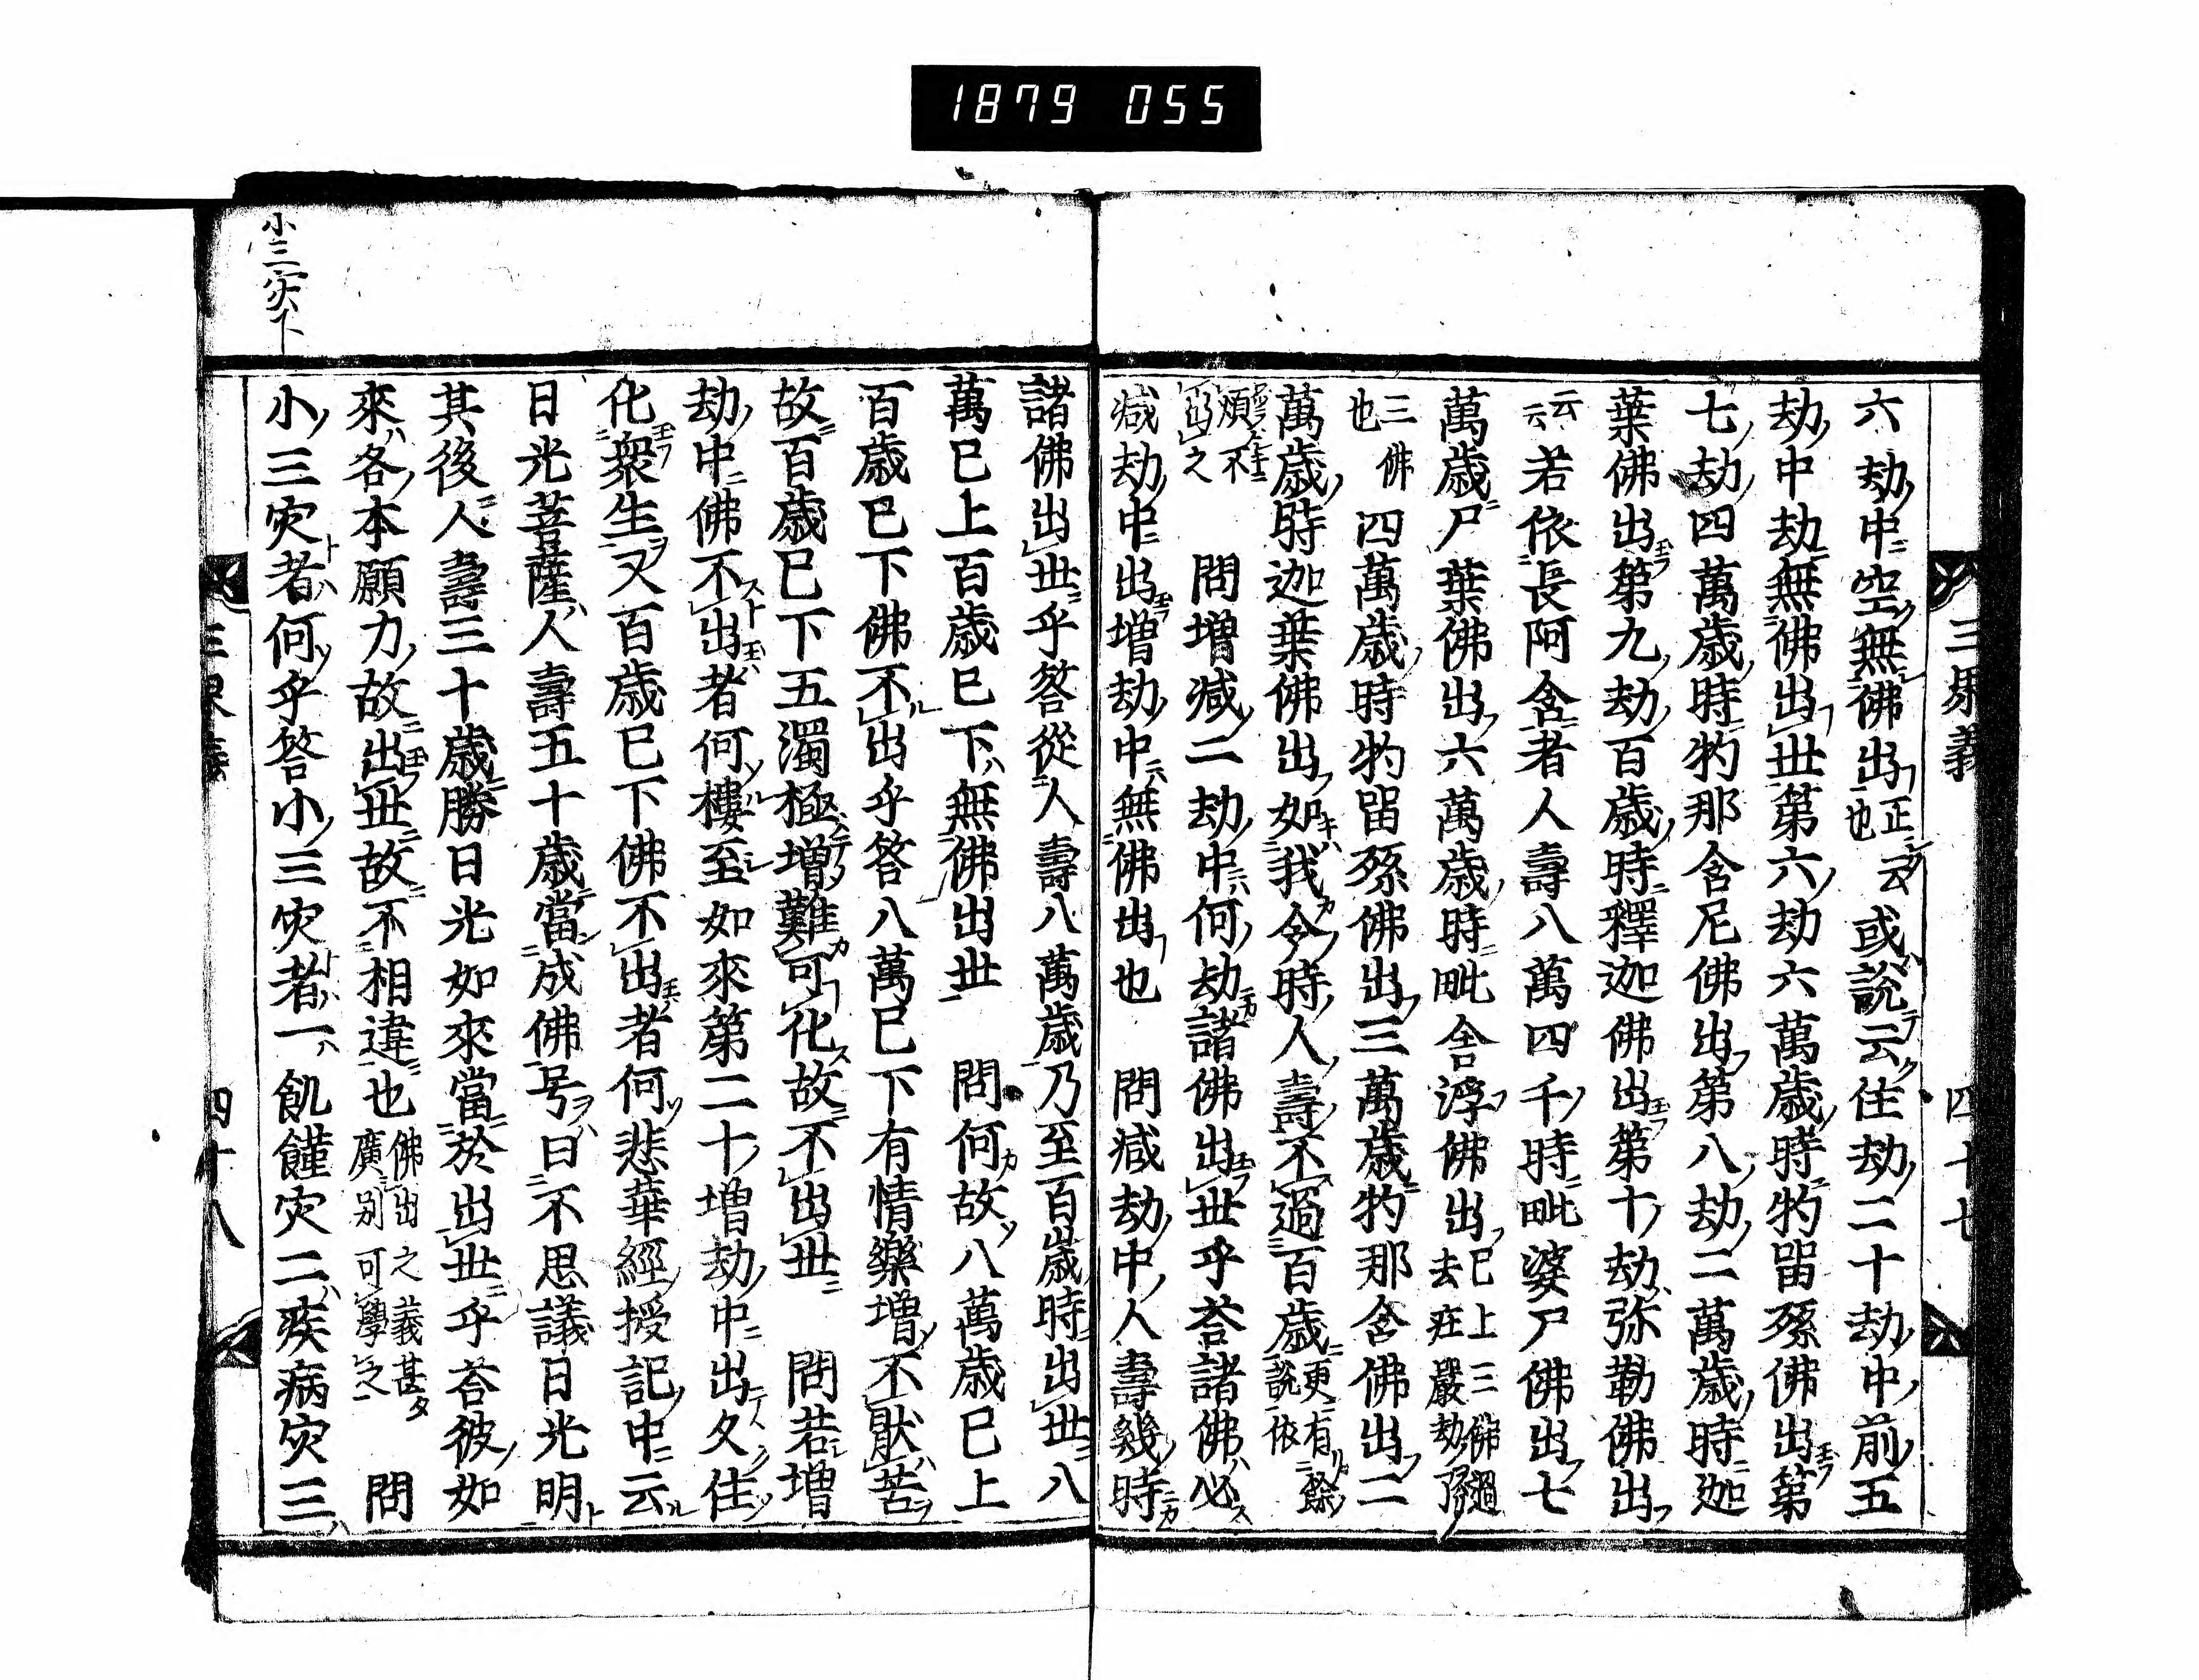 1879 055
三界義 四十七
六劫中空無佛出也正云或說云住劫二十劫中前五
劫中劫無佛出世第六劫六萬歲時㸿畄孫佛出第
七劫四萬歲時㸿那含尼佛出第八劫二萬歲時迦
葉佛出第九劫百歲時釋迦佛出第十劫弥勒佛出
云云若依長阿含者人壽八萬四千時毗婆尸佛出七
萬歲尸葉佛出六萬歲時毗舍浮佛出已上三佛過去莊嚴劫
三佛也四萬歲時㸿畄孫佛出三萬歲㸿那含佛出二
萬歲時迦葉佛出如我今時人壽不過百歲更有餘說依
煩不之 問増減二劫中何劫諸佛出世乎荅諸佛必
減劫中出増劫中無佛出也 問減劫中人壽幾時
諸佛出世乎答從人壽八萬歲乃至百歲時出世八
萬已上百歲已下無佛出世 問何故八萬歲已上
百歲已下佛不出乎答八萬已下有情樂増不猒苦
故百歲已下五濁極増難可化故不出世 問若増
劫中佛不出者何樓至如來第二十増劫中出久住
化衆生又百歲已下佛不出者何悲華經授記中云
日光菩薩人壽五十歲當成佛号曰不思議日光明
其後人壽三十歲勝日光如來當於出世乎荅彼如
來各本願力故出世故不相違也佛出之義甚廣別可學之 問
小三灾者何乎答小三灾者一飢饉灾二疾病灾三
四十八
小三灾下